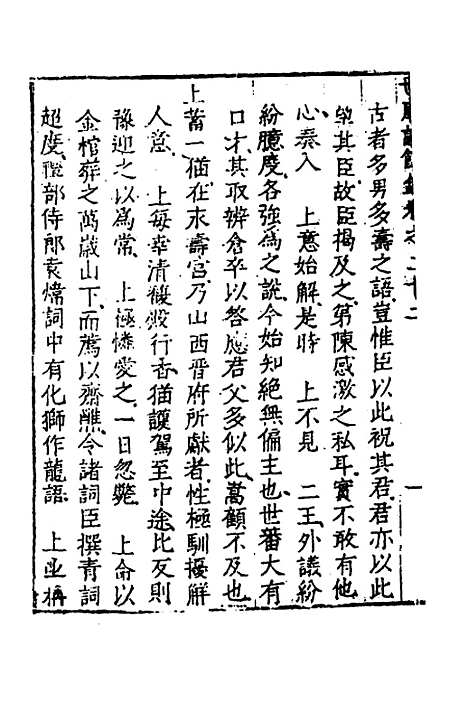 世廟識餘錄卷之二十二
一
古者多男多壽之語豈惟臣以此祝其君君亦以此
望其臣故臣揭及之第陳感激之私耳實不敢有他
心奏入　上意始解是時　上不見　二王外議紛
紛臆度各強為之說今始知絕無偏主也世蕃大有
口才其取辨倉卒以答應君父多似此嵩顧不及也
上蓄一猫在永壽宮乃山西晉府所獻者性極馴擾解
人意　上每幸清馥殿行香猫護駕至中途比反則
豫迎之以為常　上極憐愛之一日忽斃　上命以
金棺葬之萬歲山下而薦以齋醮令諸詞臣撰青詞
超度禮部侍郎袁煒詞中有化獅作龍語　上亟稱